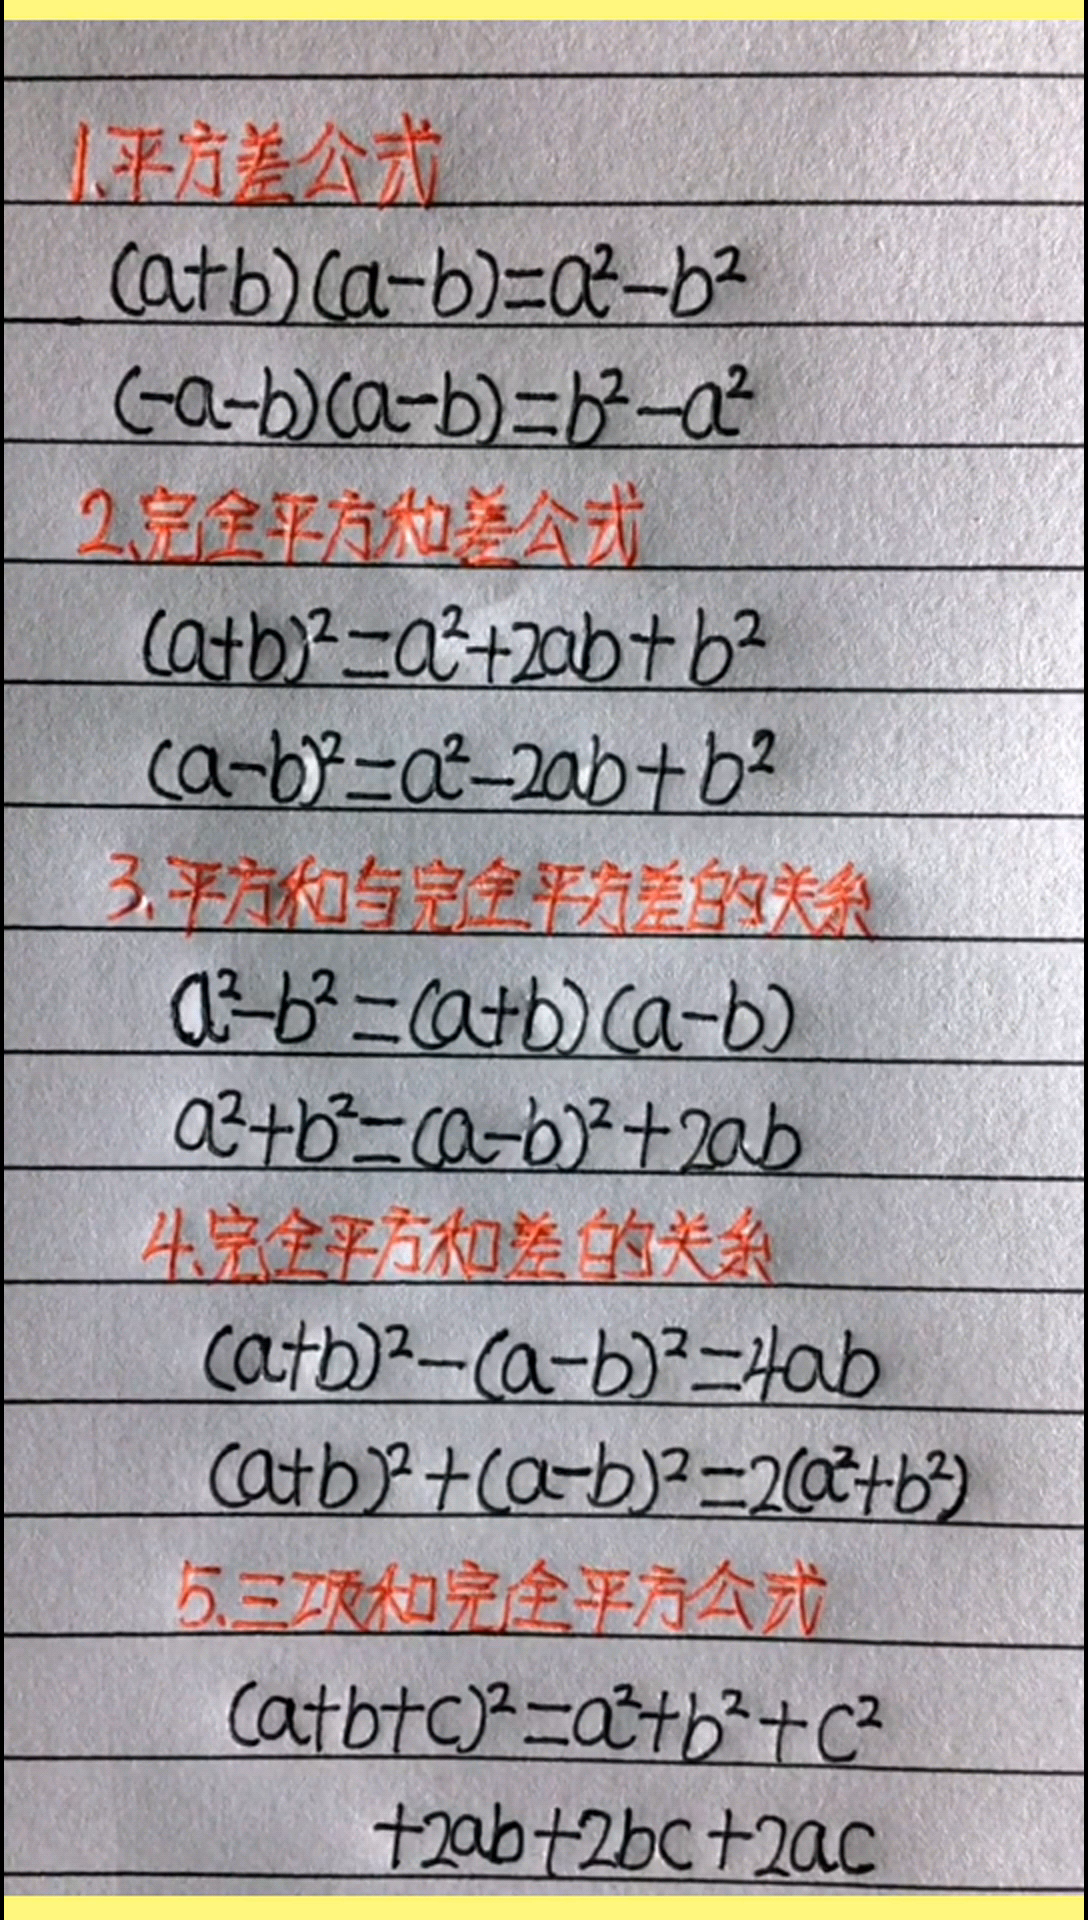 1、平方差公式
(a+b)(a-b)=a²-b²
(-a-b)(a-b)=b²-a²
2、完全平方和差公式
(a+b)²=a²+2ab+b²
(a-b)²=a²-2ab+b²
3、平方和与完全平方差的关系
a²-b²=(a+b)(a-b)
a²+b²=(a-b)²+2ab
4、完全平方和差的关系
(a+b)²-(a-b)²=4ab
(a+b)²+(a-b)²=2(a²+b²)
5、三项和完全平方公式
(a+b+c)²=a²+b²+c²
+2ab+2bc+2ac